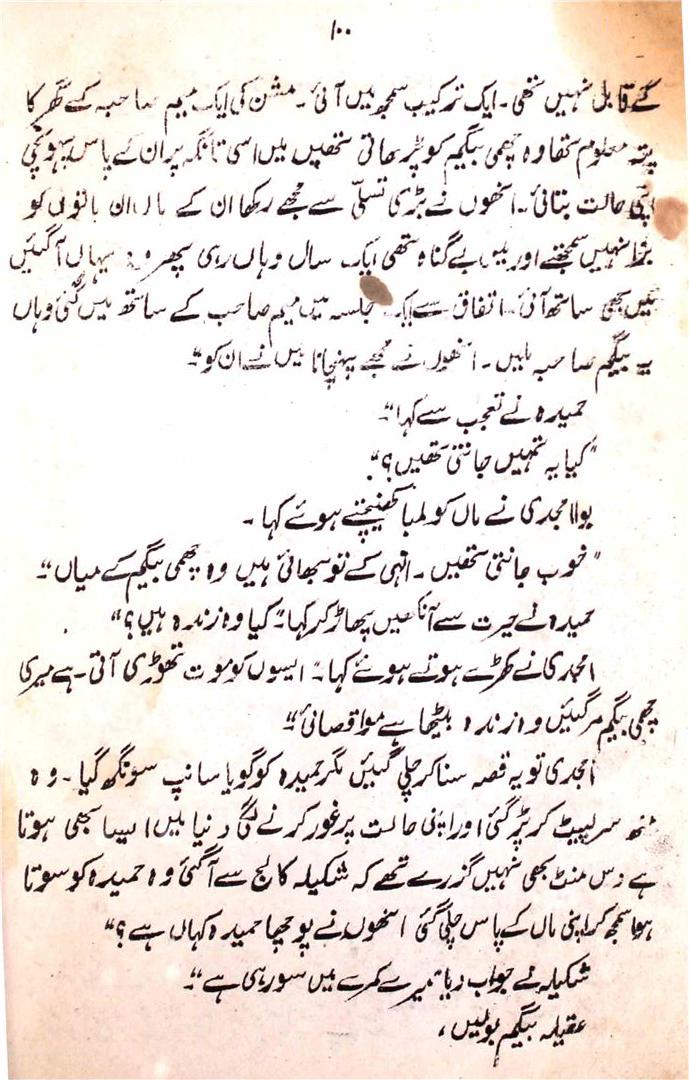 ۱۰۰
کے قابل نہیں تھی۔ ایک ترکیب سمجھ میں آئی۔ مشن کی ایک میم صاحبہ کے گھر کا
پتہ معلوم تھا وہ چھمی بیگم کو پڑھاتی تھیں میں اسی تانگہ پر ان کے پاس پہونچی
اپنی حالت بتائی۔ انھوں نے بڑی تسلّی سے مجھے رکھا ان کے ہاں ان باتوں کو
بُرا نہیں سمجھتے اور میں بے گناہ تھی ایک سال وہاں رہی پھر وہ یہاں آگئیں
میں بھی ساتھ آئی۔ اتفاق سے ایک جلسہ میں میم صاحب کے ساتھ میں گئی وہاں
یہ بیگم صاحبہ ملیں۔ انھوں نے مجھے پہنچانا میں نے ان کو"۔
حمیدہ نے تعجب سے کہا"۔
"کیا یہ تمہیں جانتی تھیں؟"۔
بوا امجدی نے ہاں کو لمبا کھینچتے ہوئے کہا۔
"خوب جانتی تھیں۔ انہی کے تو بھائی ہیں وہ چھمی بیگم کے میاں"۔
حمیدہ نے حیرت سے آنکھیں پھاڑ کر کہا" کیا وہ زندہ ہیں؟"
امجدی نے کھڑے ہوتے ہوئے کہا۔" ایسوں کو موت تھوڑی آتی۔ ہے میری
چھمی بیگم مرگئیں وہ زندہ بیٹھا ہے موا قصائی"۔
امجدی تو یہ قصہ سنا کر چلی گئیں مگر حمیدہ کو گویا سانپ سونگھ گیا۔ وہ
منھ سر لپیٹ کر پڑ گئی اور اپنی حالت پر غور کرنے لگی دنیا میں ایسا بھی ہوتا
ہے دس منٹ بھی نہیں گزرے تھے کہ شکیلہ کالج سے آگئی وہ حمیدہ کو سوتا
ہوا سمجھ کر اپنی ماں کے پاس چلی گئی انھوں نے پوچھا حمیدہ کہاں ہے؟"
شکیلہ نے جواب دیا" میرے کمرے میں سورہی ہے"۔
عقیلہ بیگم بولیں،